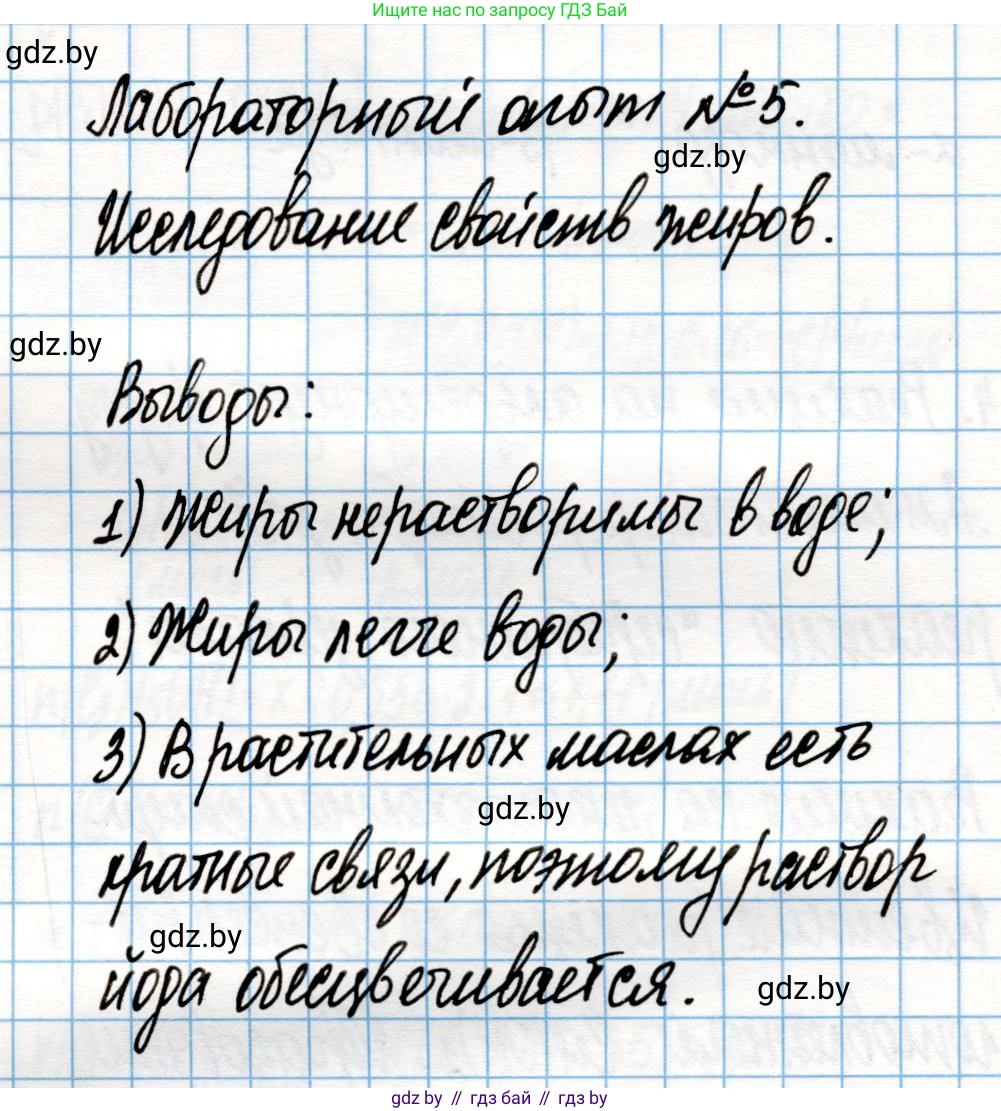 Ищите нас по запросу ГДЗ Бай
gdz.by
Лабораторный опыт №5.
gdz.by
Исследование свойств жиров.
gdz.by
Выводы:
1) Жиры нерастворимы в воде;
2) Жиры легче воды;
3) В растительных маслах есть
gdz.by
кратные связи, поэтому раствор
gdz.by
йода обесцвечивается.
gdz.by
gdz.by // гдз бай // gdz.by